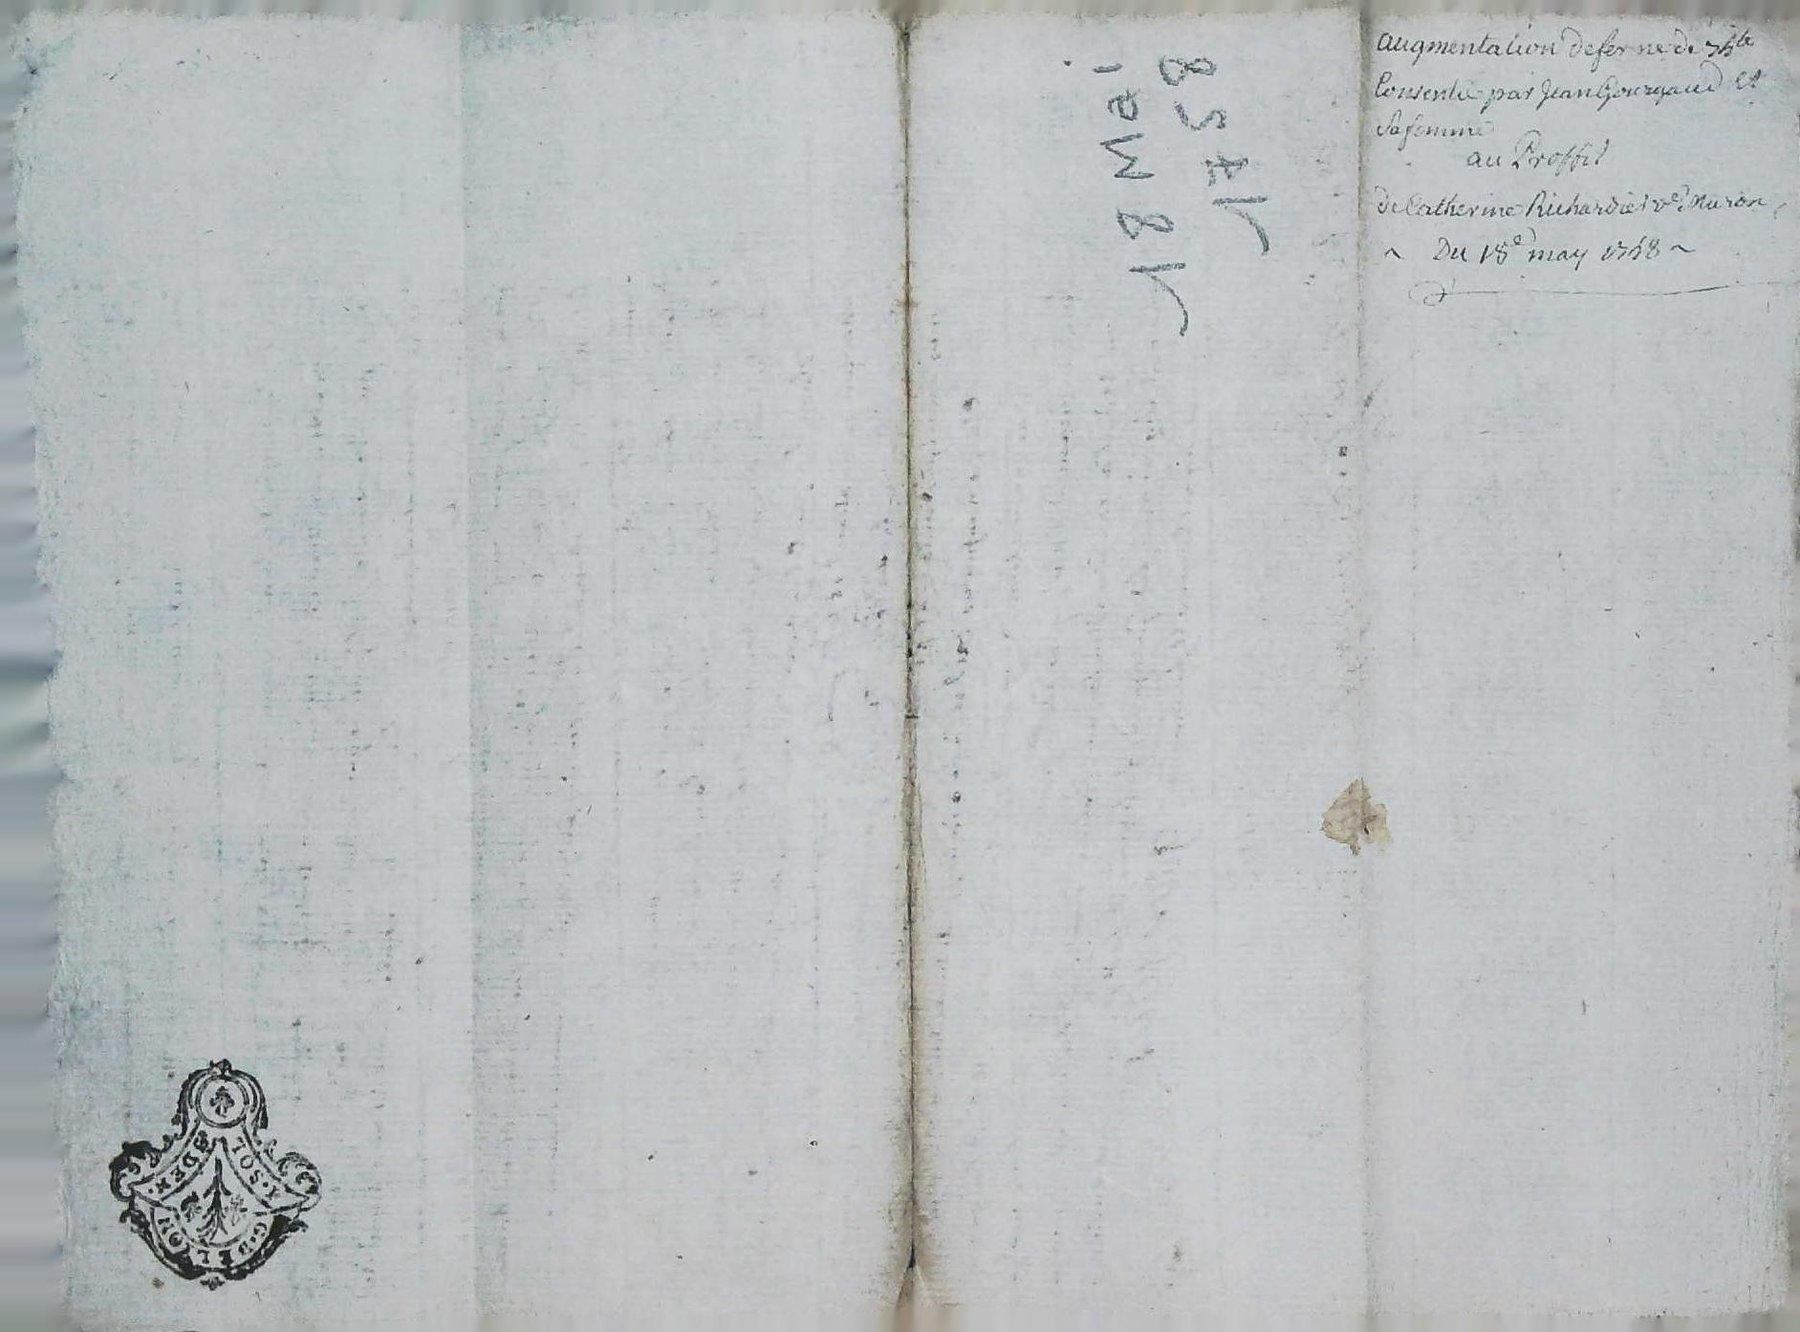 augmentation de ferme de 7#te
Consentie par Jean Gourgaud Et
Sa femme
au Proffit
de Catherine Richardiet ve. Nuron
~ Du 18e may 1758 ~
18 Mai
1758
SOL
G. DE LION